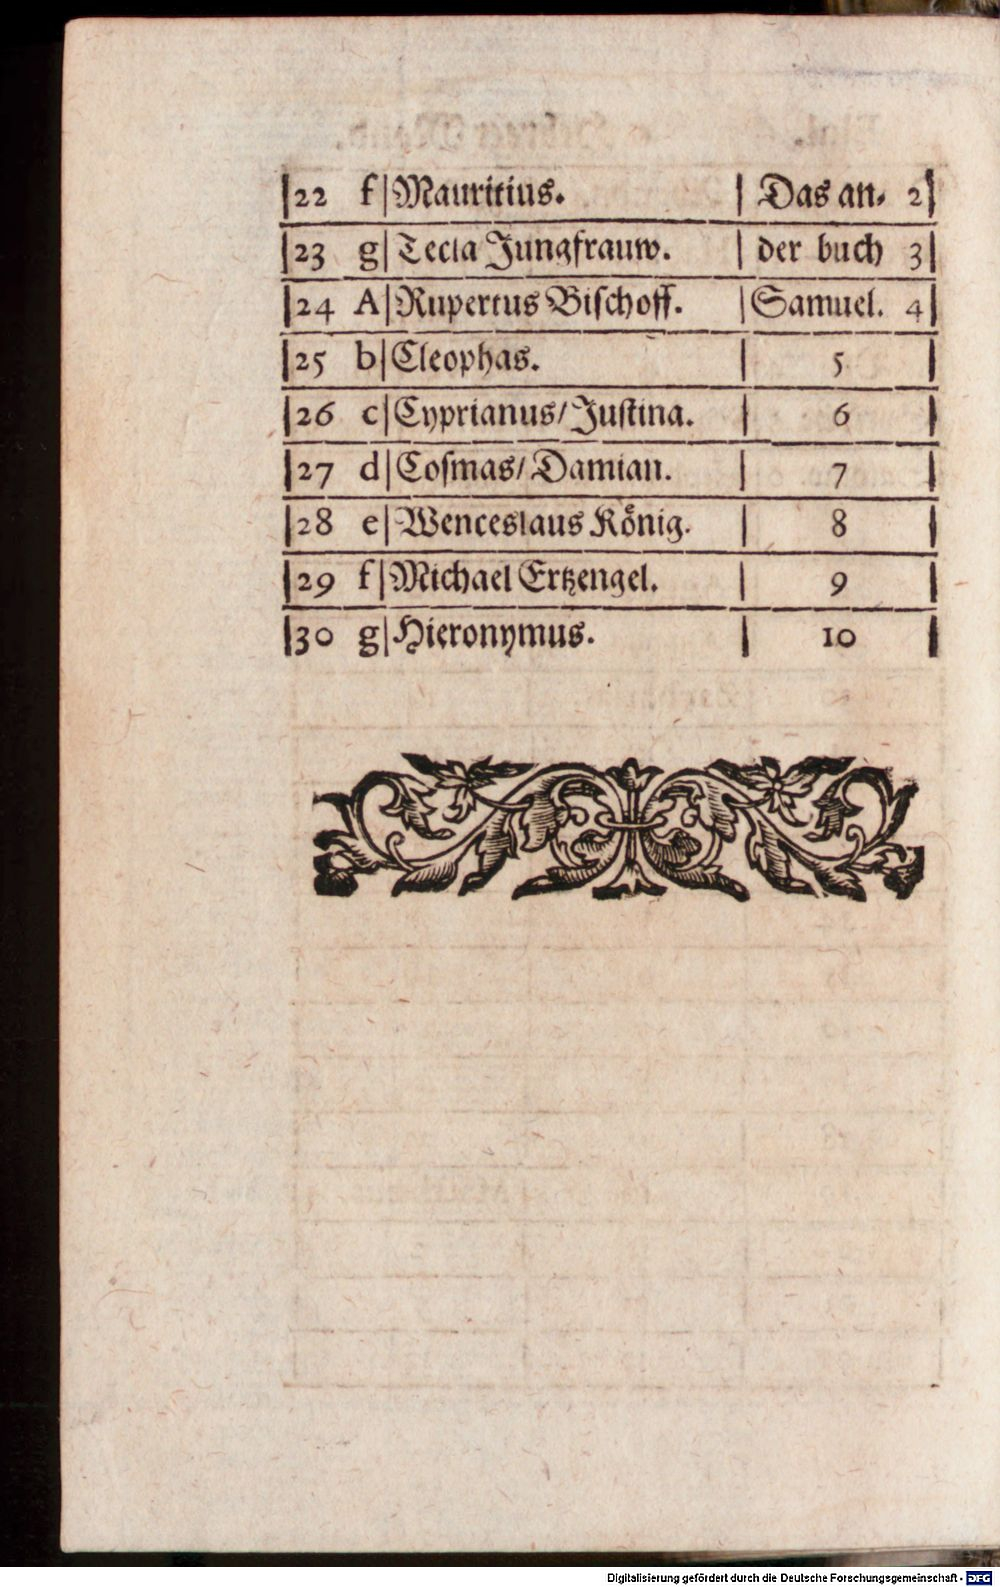 22 f Mauritius. Das an⸗ 2
23 g Tecla Jungfrauw. der buch 3
24 A Rupertus Bischoff. Samuel. 4
25 b Cleophas. 5
26 c Cyprianus/ Justina. 6
27 d Cosmas/ Damian. 7
28 e Wenceslaus König. 8
29 f Michael Ertzengel. 9
30 g Hieronymus. 10
Digitalisierung gefördert durch die Deutsche Forschungsgemeinschaft - DFG